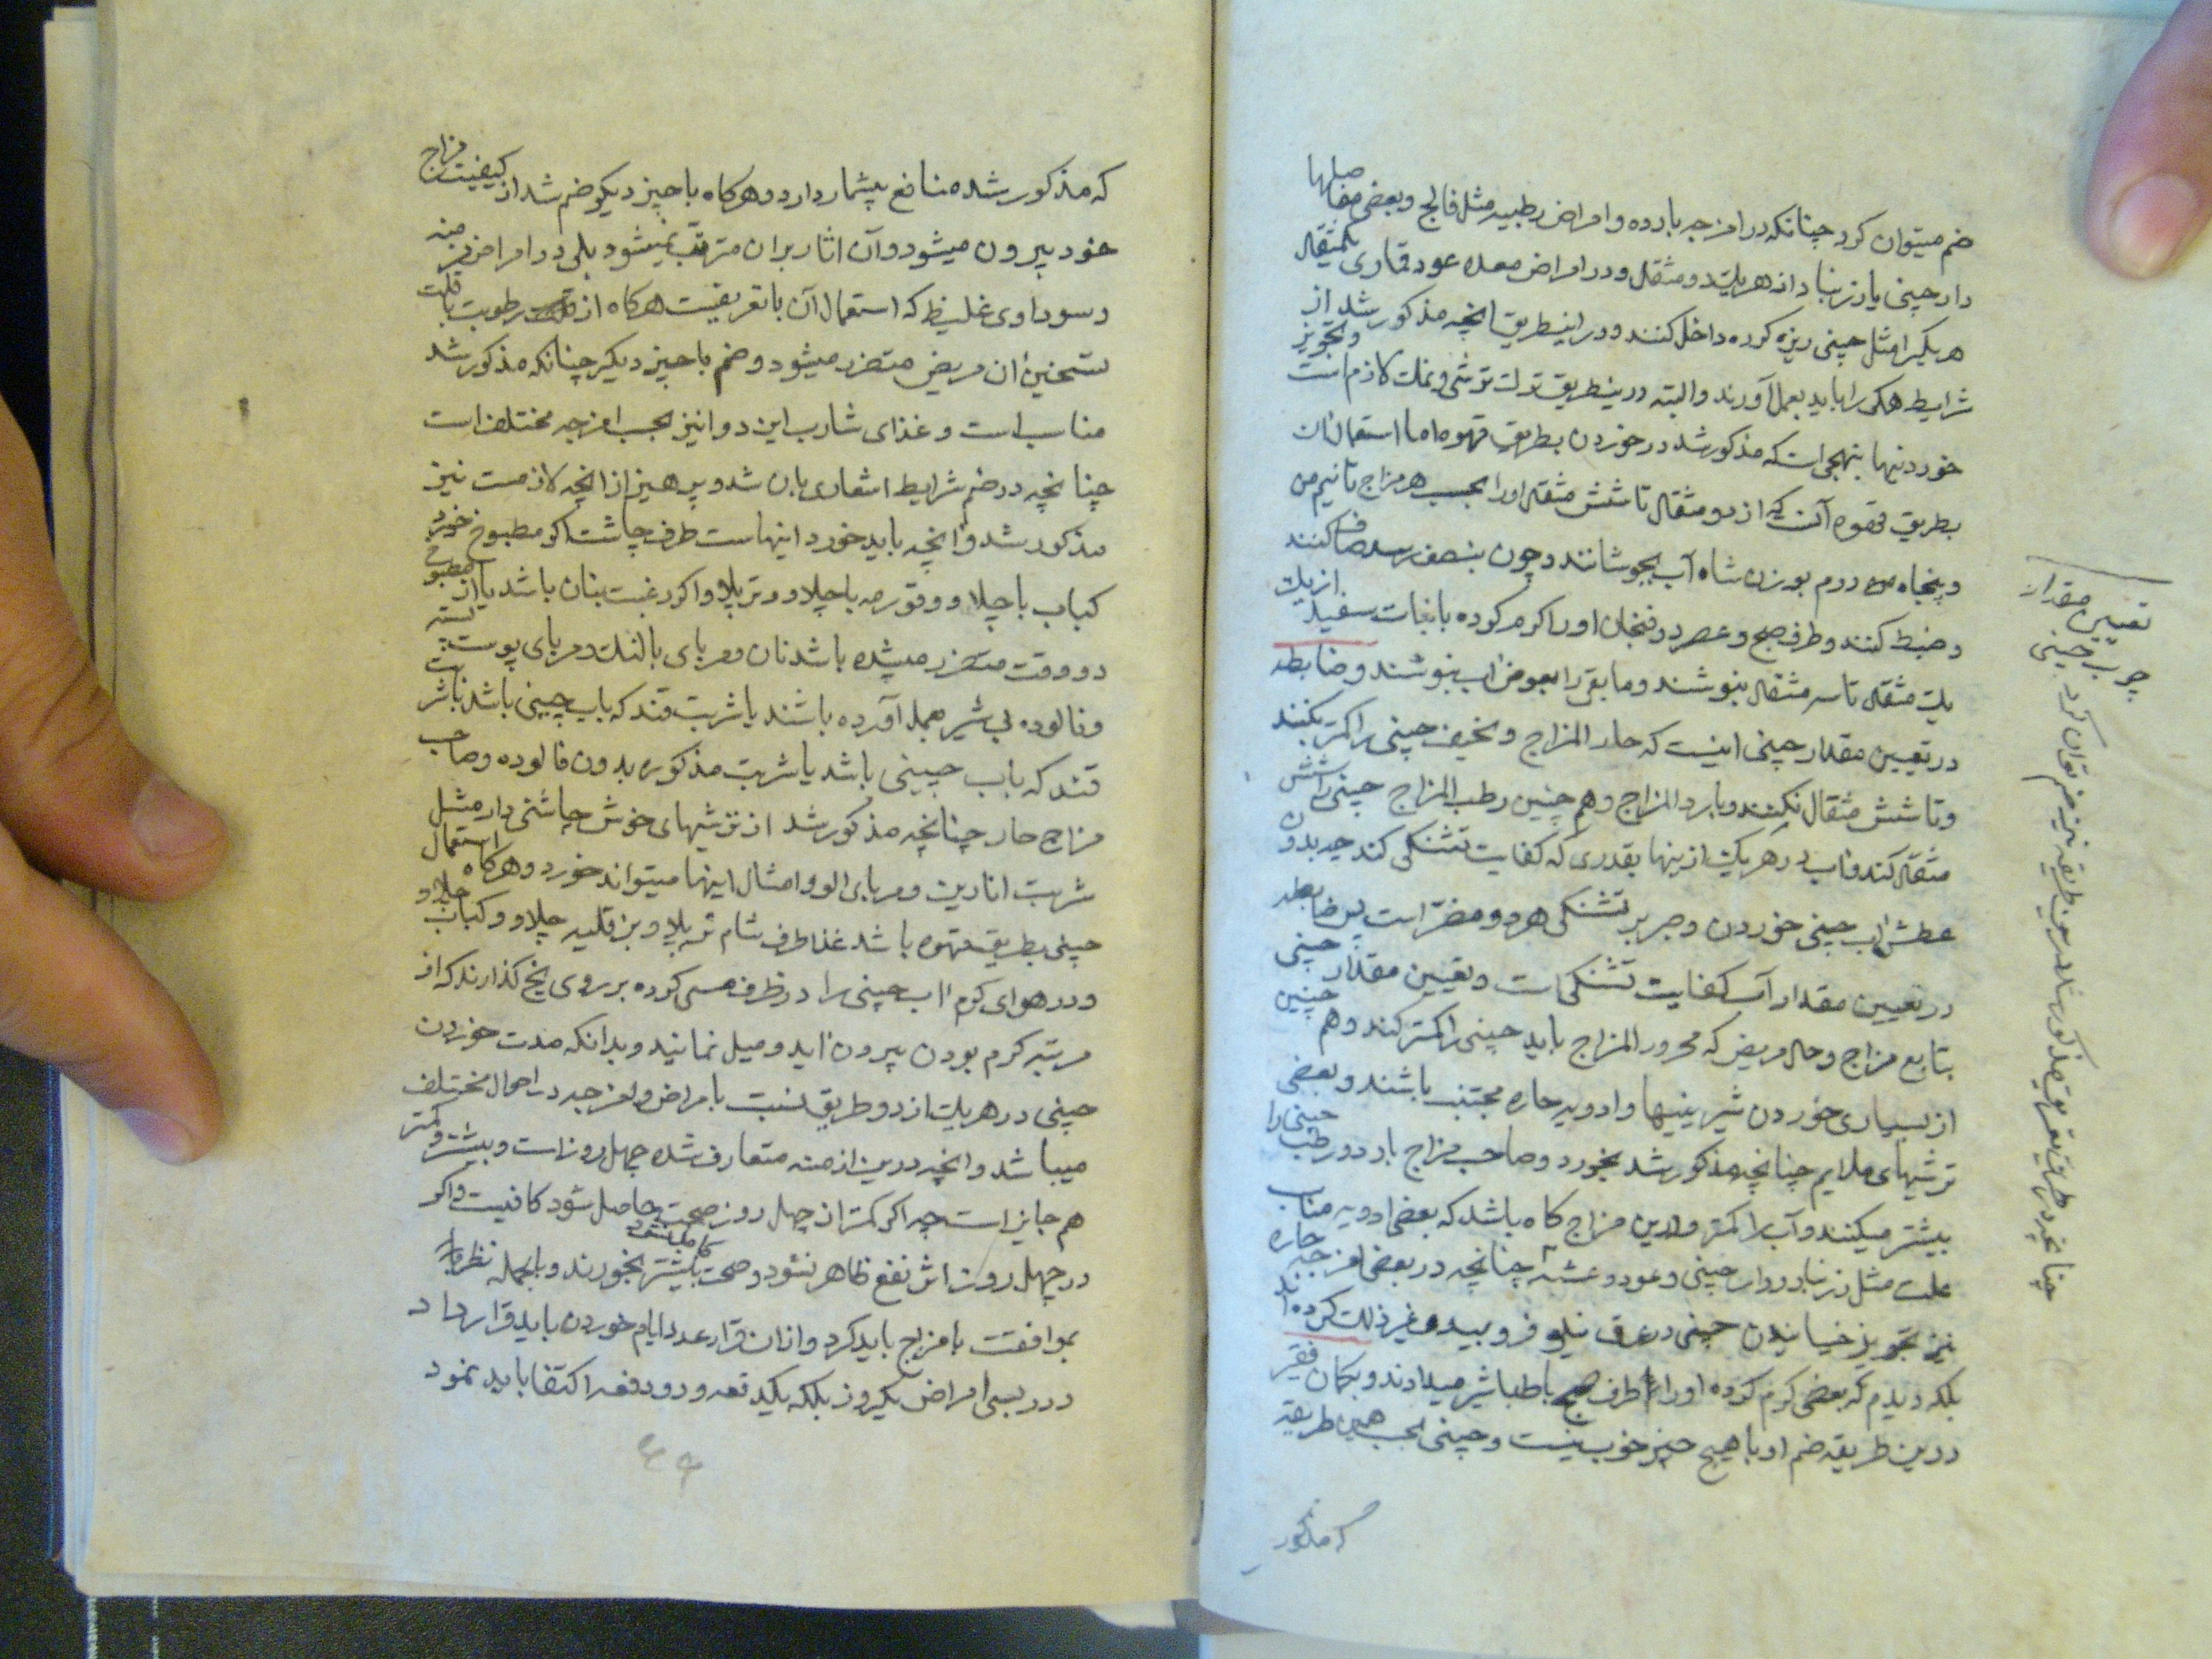 ضم میتوان کرد چنانکه در امزجه بارده و امراض رطبیه مثل فالج و بعضی مفاصلها
دارچینی یا زرنباد از هر یک دو مثقال و در امراض معده عود قماری یکمثقال
هر یکیرا مثل چینی ریزه کرده داخل کنند و در اینطریق انچه مذکور شد از
شرایط همکی را باید بعمل آورند و البته درینطریق ترک ترشی و نمک لازم است و تجویز
خوردنیها بنهجی است که مذکور شد در خوردن بطریق قهوه اما استعمال ان
بطریق قهوه آنست که از دو مثقال تا شش مثقال اورا بحسب هر مزاج تا نیم من
و پنجاه درم بوزن شاه آب بجوشانند و چون بنصف رسد صاف کنند
و ضبط کنند و طرف صبح و عصر دو فنجان اورا کرم کرده با نبات سفید از یک
یک مثقال تا سه مثقال بنوشند و مابقی را بعوض اب بنوشند و ضابطه
در تعیین مقدار چینی اینست که حار المزاج و نحیف چینی را کمتر بکنند
و تا شش مثقال نکنند و بارد المزاج و هم چنین رطب المزاج چینی را شش
مثقال کند و اب در هر یک ازینها بقدری که کفایت تشنکی کند چه بدون
عطش اب چینی خوردن و جبر بر تشنکی هر دو مضر است پس ضابطه
در تعیین مقدار آب کفایت تشنکی است و تعیین مقدار چینی
بتابع مزاج و حال مریض که محرور المزاج باید چینی را کمتر کند و هم چنین
از بسیاری خوردن شیرینیها و ادویه حاره مجتنب باشند و بعضی
ترشیهای ملایم چنانچه مذکور شد بخورد و صاحب مزاج بارد و رطب چینی را
بیشتر میکنند و آب را کمتر و درین مزاج کاه باشد که بعضی ادویه مناسب
علت مثل زرنباد و دارچینی و عود و عشبه چنانچه در بعضی امزجه حاره
نیز تجویز خیسانیدن چینی در عرق نیلوفر و بید و غیر ذلک کرده اند
بلکه دیدم که بعضی کرم کرده اورا طرف صبح با طباشیر میدادند و بکمان فقیر
درین طریقه ضم او با هیچ چیز خوب نیست و چینی بحسب همین طریقه
که مذکور
تعیین مقدار
چوب چینی
که مذکور شده منافع بیشمار دارد و هرکاه با چیز دیکر ضم شد از کیفیت مزاج
خود بیرون میشود و آن اثار بران مترتب نمیشود بلی در امراض مزمنه
و سوداوی غلیظ که استعمال آن با تعریفیست هرکاه از رطوبت با قلت
تسخین ان مریض متضرر میشود و ضم با چیز دیکر چنانکه مذکور شد
مناسب است و غذای شارب این دوا نیز بحسب امزجه مختلف است
چنانچه در ضم شرایط اشعاری بان شد و پرهیز از انچه لازمست نیز
مذکور شد و انچه باید خورد اینهاست طرف چاشت اکر مطبوخ خورد
کباب با چلاو و قورمه با چلاو و تر پلاو و اکر رغبت بنان باشد یا از مطبوخ
دو وقت متضرر میشده باشد نان و مربای بالنک و مربای پوست پسته
و فالوده بی شیر بعمل آورده باشند با شربت قند که باب چینی باشد یا شربت
قند که باب چینی باشد یا شربت مذکوره بدون فالوده و صاحب
مزاج حار چنانچه مذکور شد از ترشیهای خوش چاشنی دار مثل
شربت انارین و مربای الو و امثال اینها میتواند خورد و هرکاه استعمال
چینی بطریق قهوه باشد غذا طرف شام تر پلاو و بز قلیه چلاو و کباب چلاو
و در هوای کرم اب چینی را در ظرف مسی کرده بر روی یخ کذارند که از
مرتبه کرم بودن بیرون اید و میل نمایند و بدانکه مدت خوردن
چینی در هر یک از دو طریق نسبت بامراض و امزجه در احوال مختلف
میباشد و انچه درین ازمنه متعارف شده چهل روز است و بیشتر و کمتر
هم جایز است چه اکر کمتر از چهل روز صحت حاصل شود کافیست و اکر
در چهل روز اش نفع ظاهر نشود و صحت کامل نشود بیشتر بخورند و بالجمله نظر باید
بموافقت با مزاج باید کرد و ازان قرار عدد ایام خوردن باید قرار داد
و در بسی امراض یکروز بلکه یکدفعه و دو دفعه اکتفا باید نمود